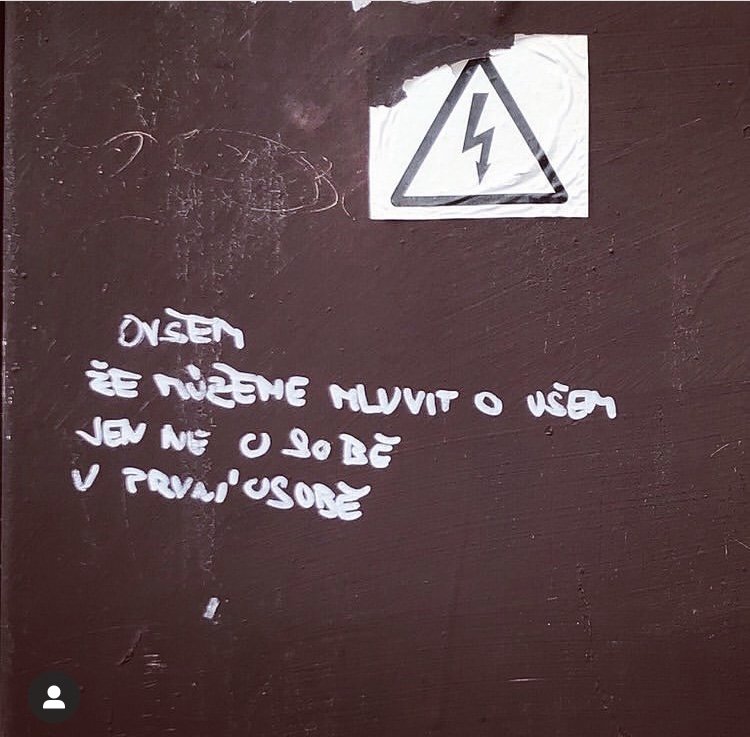 OVŠEM
ŽE MŮŽEME MLUVIT O VŠEM
JEN NE O SOBĚ
V PRVNÍ OSOBĚ